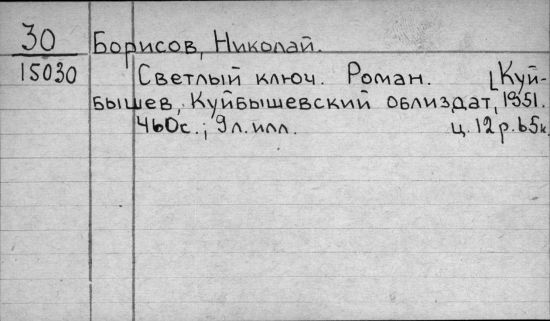 30 Борисов, Николай.
15030 Светлый ключ. Роман. [Куй-
бышев, Куйбышевский облиздат, 1951.
460с.; 9л.илл. ц. 12р.65к.